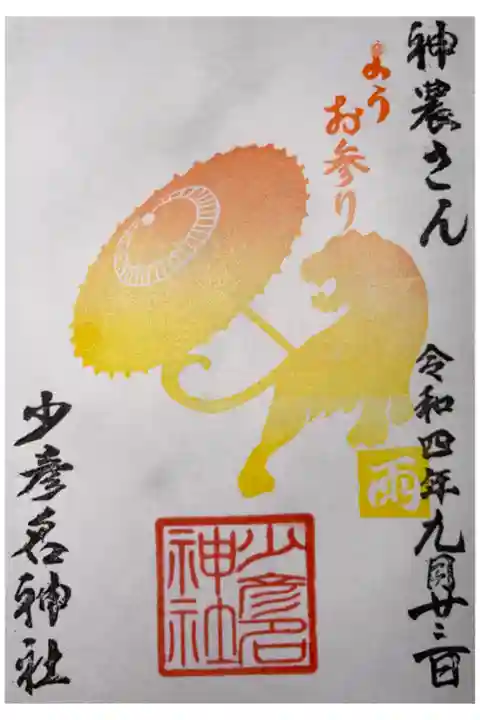 神農さん
ようお参り
令和四年九月廿二日
雨
少彦名
神社
少彦名神社